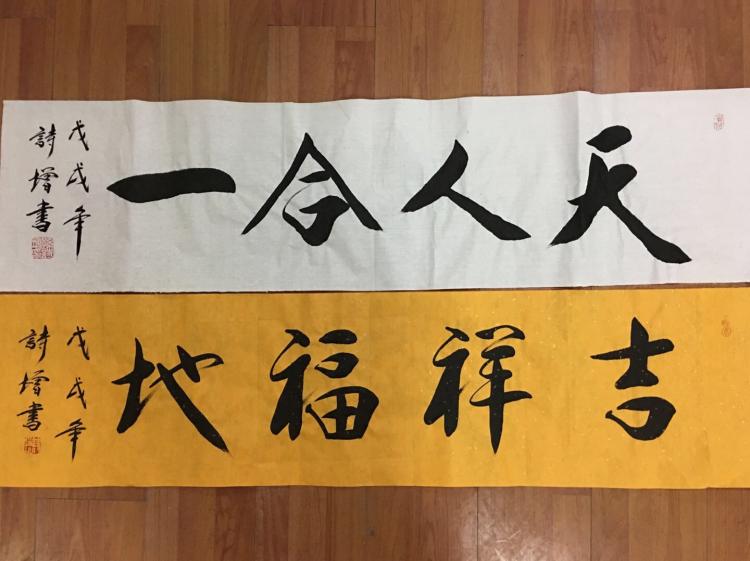 天人合一
戊戌年
詩增書
吉祥福地
戊戌年
詩增書